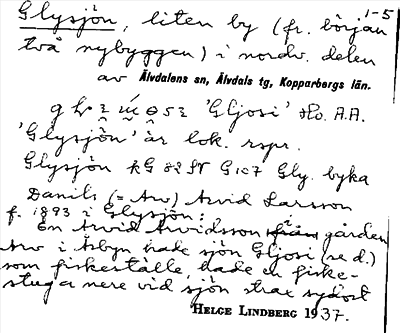 1-5
Glysjön, liten by (fr. början
två nybyggen) i nordv. delen
av Älvdalens sn, Älvdals tg, Kopparbergs län.
'Gljosi' Ho. A.A.
'Glysjön' är lok. rspr.
Glysjön kG 82 SV G 1c7 Gly. byka
Danils (= Arv) Arvid Larsson
f. 1893 i Glysjön:
En Arvid Arvidsson från gården
Arv i Åsbyn hade sjön Gljosi (se d.)
som fiskeställe, hade en fiske-
stuga nere vid sjön strax sydost
HELGE LINDBERG 1937.